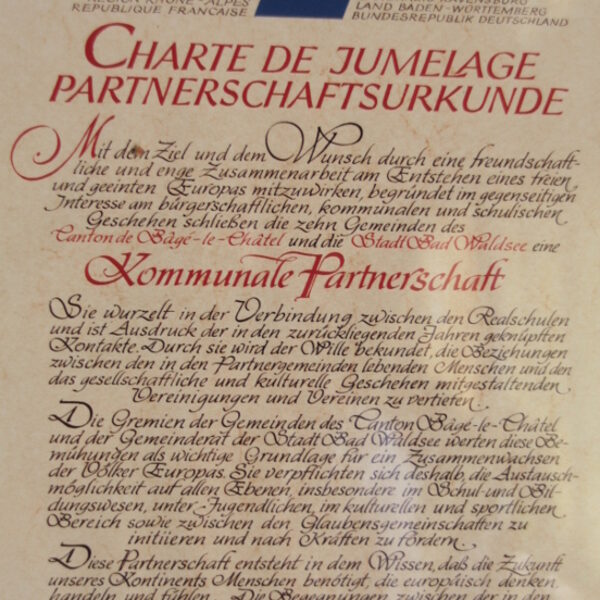 RÉGION RHÔNE-ALPES
RÉPUBLIQUE FRANÇAISE
RAVENSBURG
LAND BADEN-WÜRTTEMBERG
BUNDESREPUBLIK DEUTSCHLAND
CHARTE DE JUMELAGE
PARTNERSCHAFTSURKUNDE
Mit dem Ziel und dem Wunsch durch eine freundschaft-
liche und enge Zusammenarbeit am Entstehen eines freien
und geeinten Europas mitzuwirken, begründet im gegenseitigen
Interesse am bürgerschaftlichen, kommunalen und schulischen
Geschehen schließen die zehn Gemeinden des
Canton de Bâgé-le-Châtel und die Stadt Bad Waldsee eine
Kommunale Partnerschaft
Sie wurzelt in der Verbindung zwischen den Realschulen
und ist Ausdruck der in den zurückliegenden Jahren geknüpften
Kontakte. Durch sie wird der Wille bekundet, die Beziehungen
zwischen den in den Partnergemeinden lebenden Menschen und den
das gesellschaftliche und kulturelle Geschehen mitgestaltenden
Vereinigungen und Vereinen zu vertiefen.
Die Gremien der Gemeinden des Canton Bâgé-le-Châtel
und der Gemeinderat der Stadt Bad Waldsee werten diese Be-
mühungen als wichtige Grundlage für ein Zusammenwachsen
der Völker Europas. Sie verpflichten sich deshalb, die Austausch-
möglichkeit auf allen Ebenen, insbesondere im Schul- und Bil-
dungswesen, unter Jugendlichen, im kulturellen und sportlichen
Bereich sowie zwischen den Glaubensgemeinschaften zu
initiieren und nach Kräften zu fördern.
Diese Partnerschaft entsteht in dem Wissen, daß die Zukunft
unseres Kontinents Menschen benötigt, die europäisch denken,
handeln und fühlen. Die Begegnungen zwischen der in den